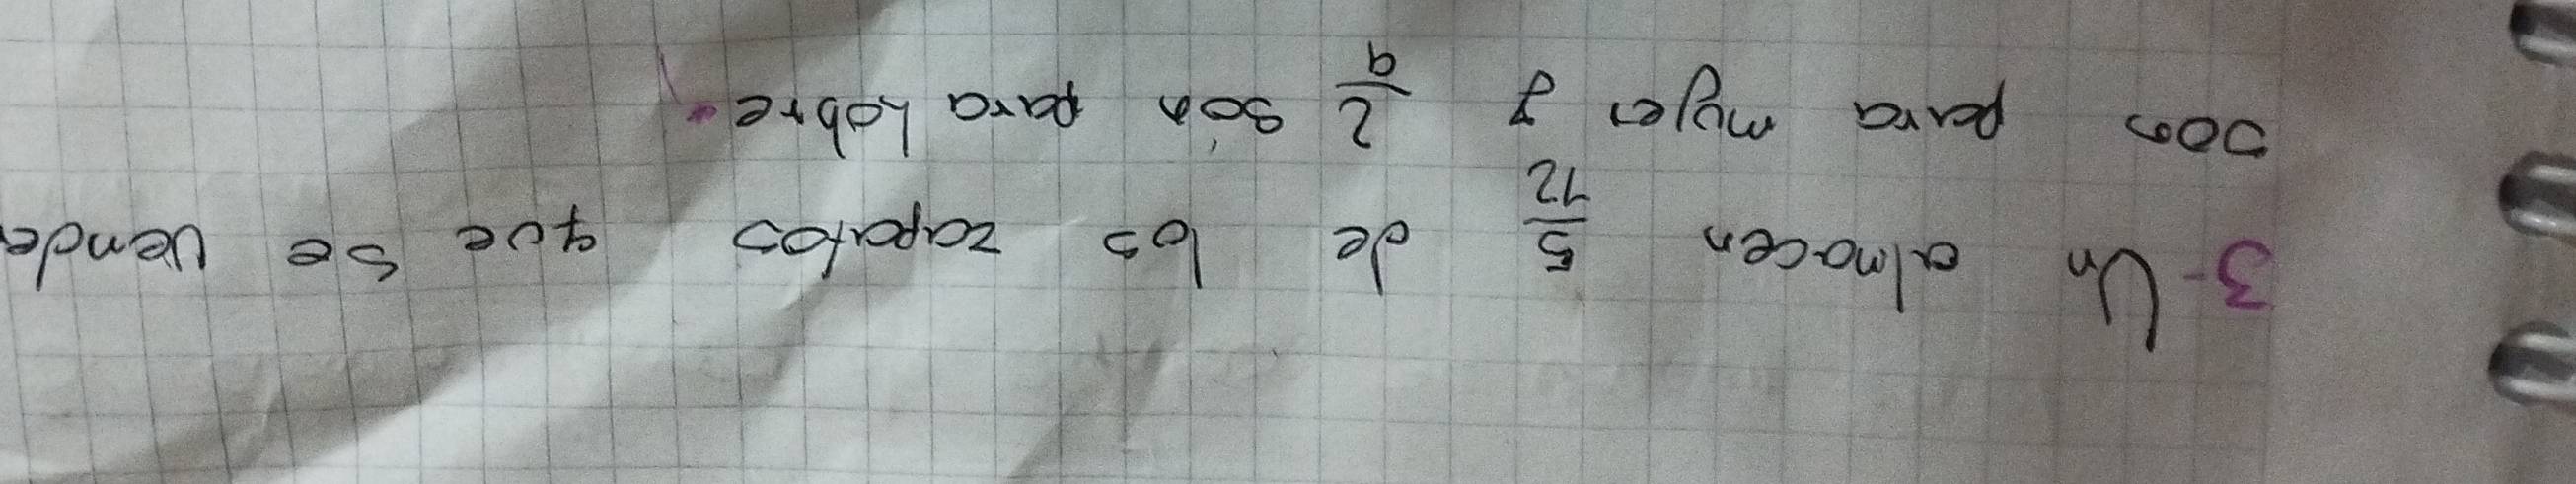 3- Un almacen 5/12 de los zapatos que se vende
son para mujer y 2/9 son para hobre.